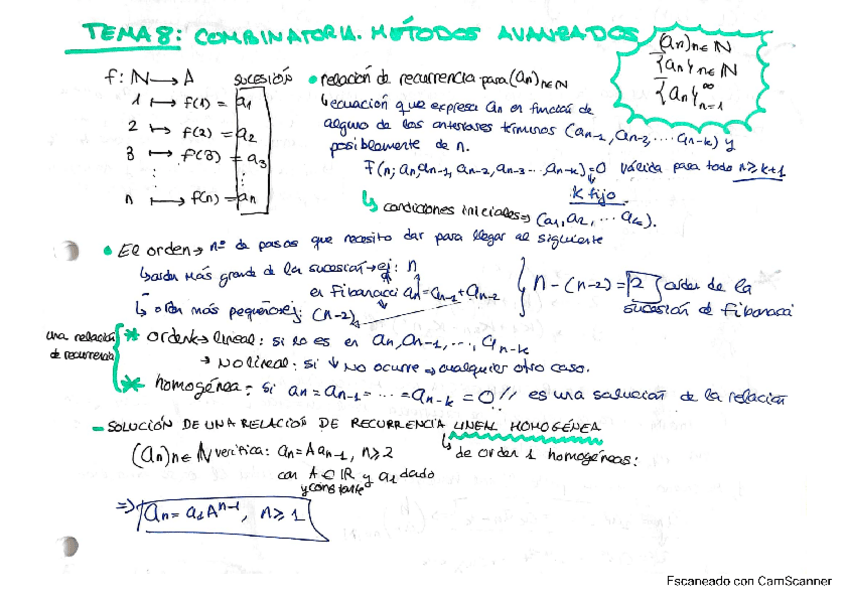 TEMA 8: COMBINATORIA. MÉTODOS AVANZADOS
(an)n∈ℕ
{an}n∈ℕ
{an}∞n=1
f: ℕ → A sucesión
1 ↦ f(1) = a1
2 ↦ f(2) = a2
3 ↦ f(3) = a3
⋮ ⋮
n ↦ f(n) = an
• relación de recurrencia para (an)n∈ℕ
↳ ecuación que expresa an en función de
alguno de los anteriores términos (an-1, an-2, ... an-k) y
posiblemente de n.
F(n; an, an-1, an-2, an-3 ... an-k)=0 válida para todo n≥k+1
k fijo.
↳ condiciones iniciales → (a1, a2, ... ak).
• El orden → nº de pasos que necesito dar para llegar al siguiente
↳ orden más grande de la sucesión → ej: n
en Fibonacci an = an-1 + an-2
↳ orden más pequeño ej: (n-2)
n - (n-2) = 2 orden de la
sucesión de Fibonacci
una relación
de recurrencia
* orden k → lineal: si lo es en an, an-1, ..., an-k
→ No lineal: si ↓ no ocurre → cualquier otro caso.
* homogénea: si an = an-1 = ... = an-k = 0 // es una solución de la relación
- SOLUCIÓN DE UNA RELACIÓN DE RECURRENCIA LINEAL HOMOGÉNEA
↳ de orden 1 homogéneas:
(an)n∈ℕ verifica: an = A an-1, n≥2
con A ∈ ℝ y a1 dado
y constante
⇒ an = a1 A^n-1, n≥1
Escaneado con CamScanner